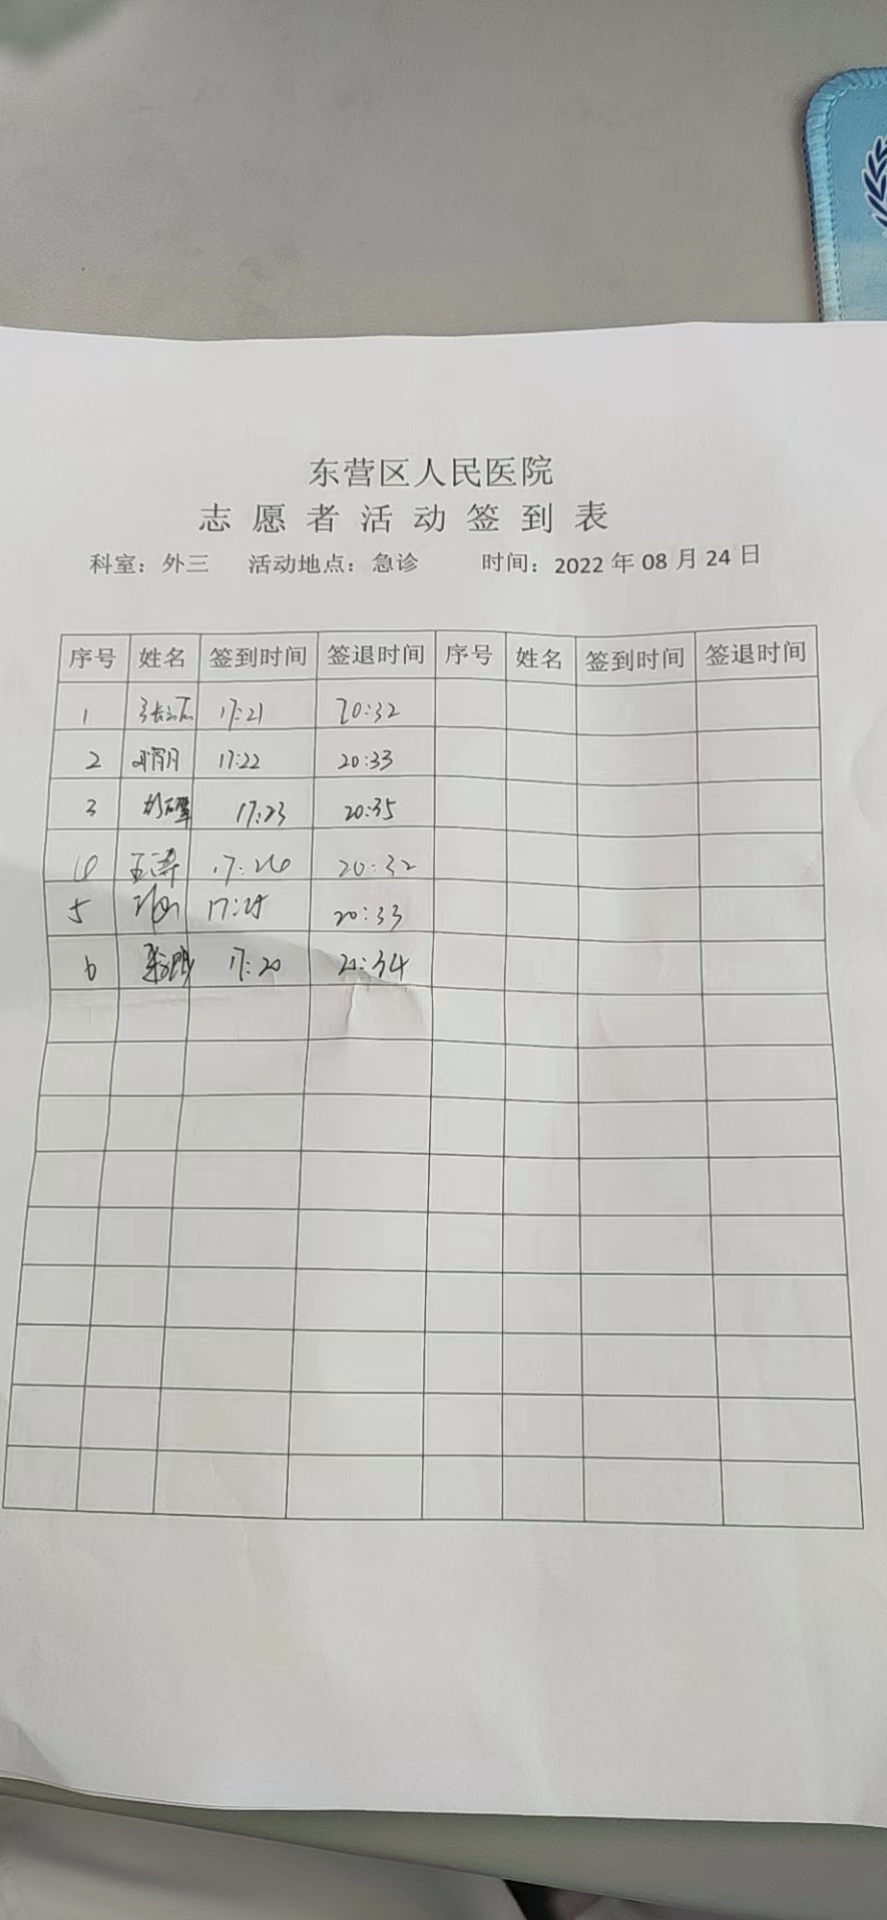 东营区人民医院
志愿者活动签到表
科室：外三 活动地点：急诊 时间：2022年08月24日
序号 姓名 签到时间 签退时间 序号 姓名 签到时间 签退时间
1 17:21 20:32
2 17:22 20:33
3 17:23 20:35
王涛 17:26 20:32
5 17:25 20:33
6 17:20 20:34